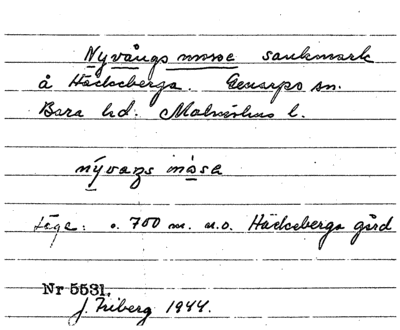 Nyvångs mosse sankmark
å Häckeberga. Genarps sn.
Bara hd. Malmöhus l.
nývaŋs måsa
Läge: c. 700 m. n.o. Häckeberga gård
Nr 5531.
J. Friberg 1944.